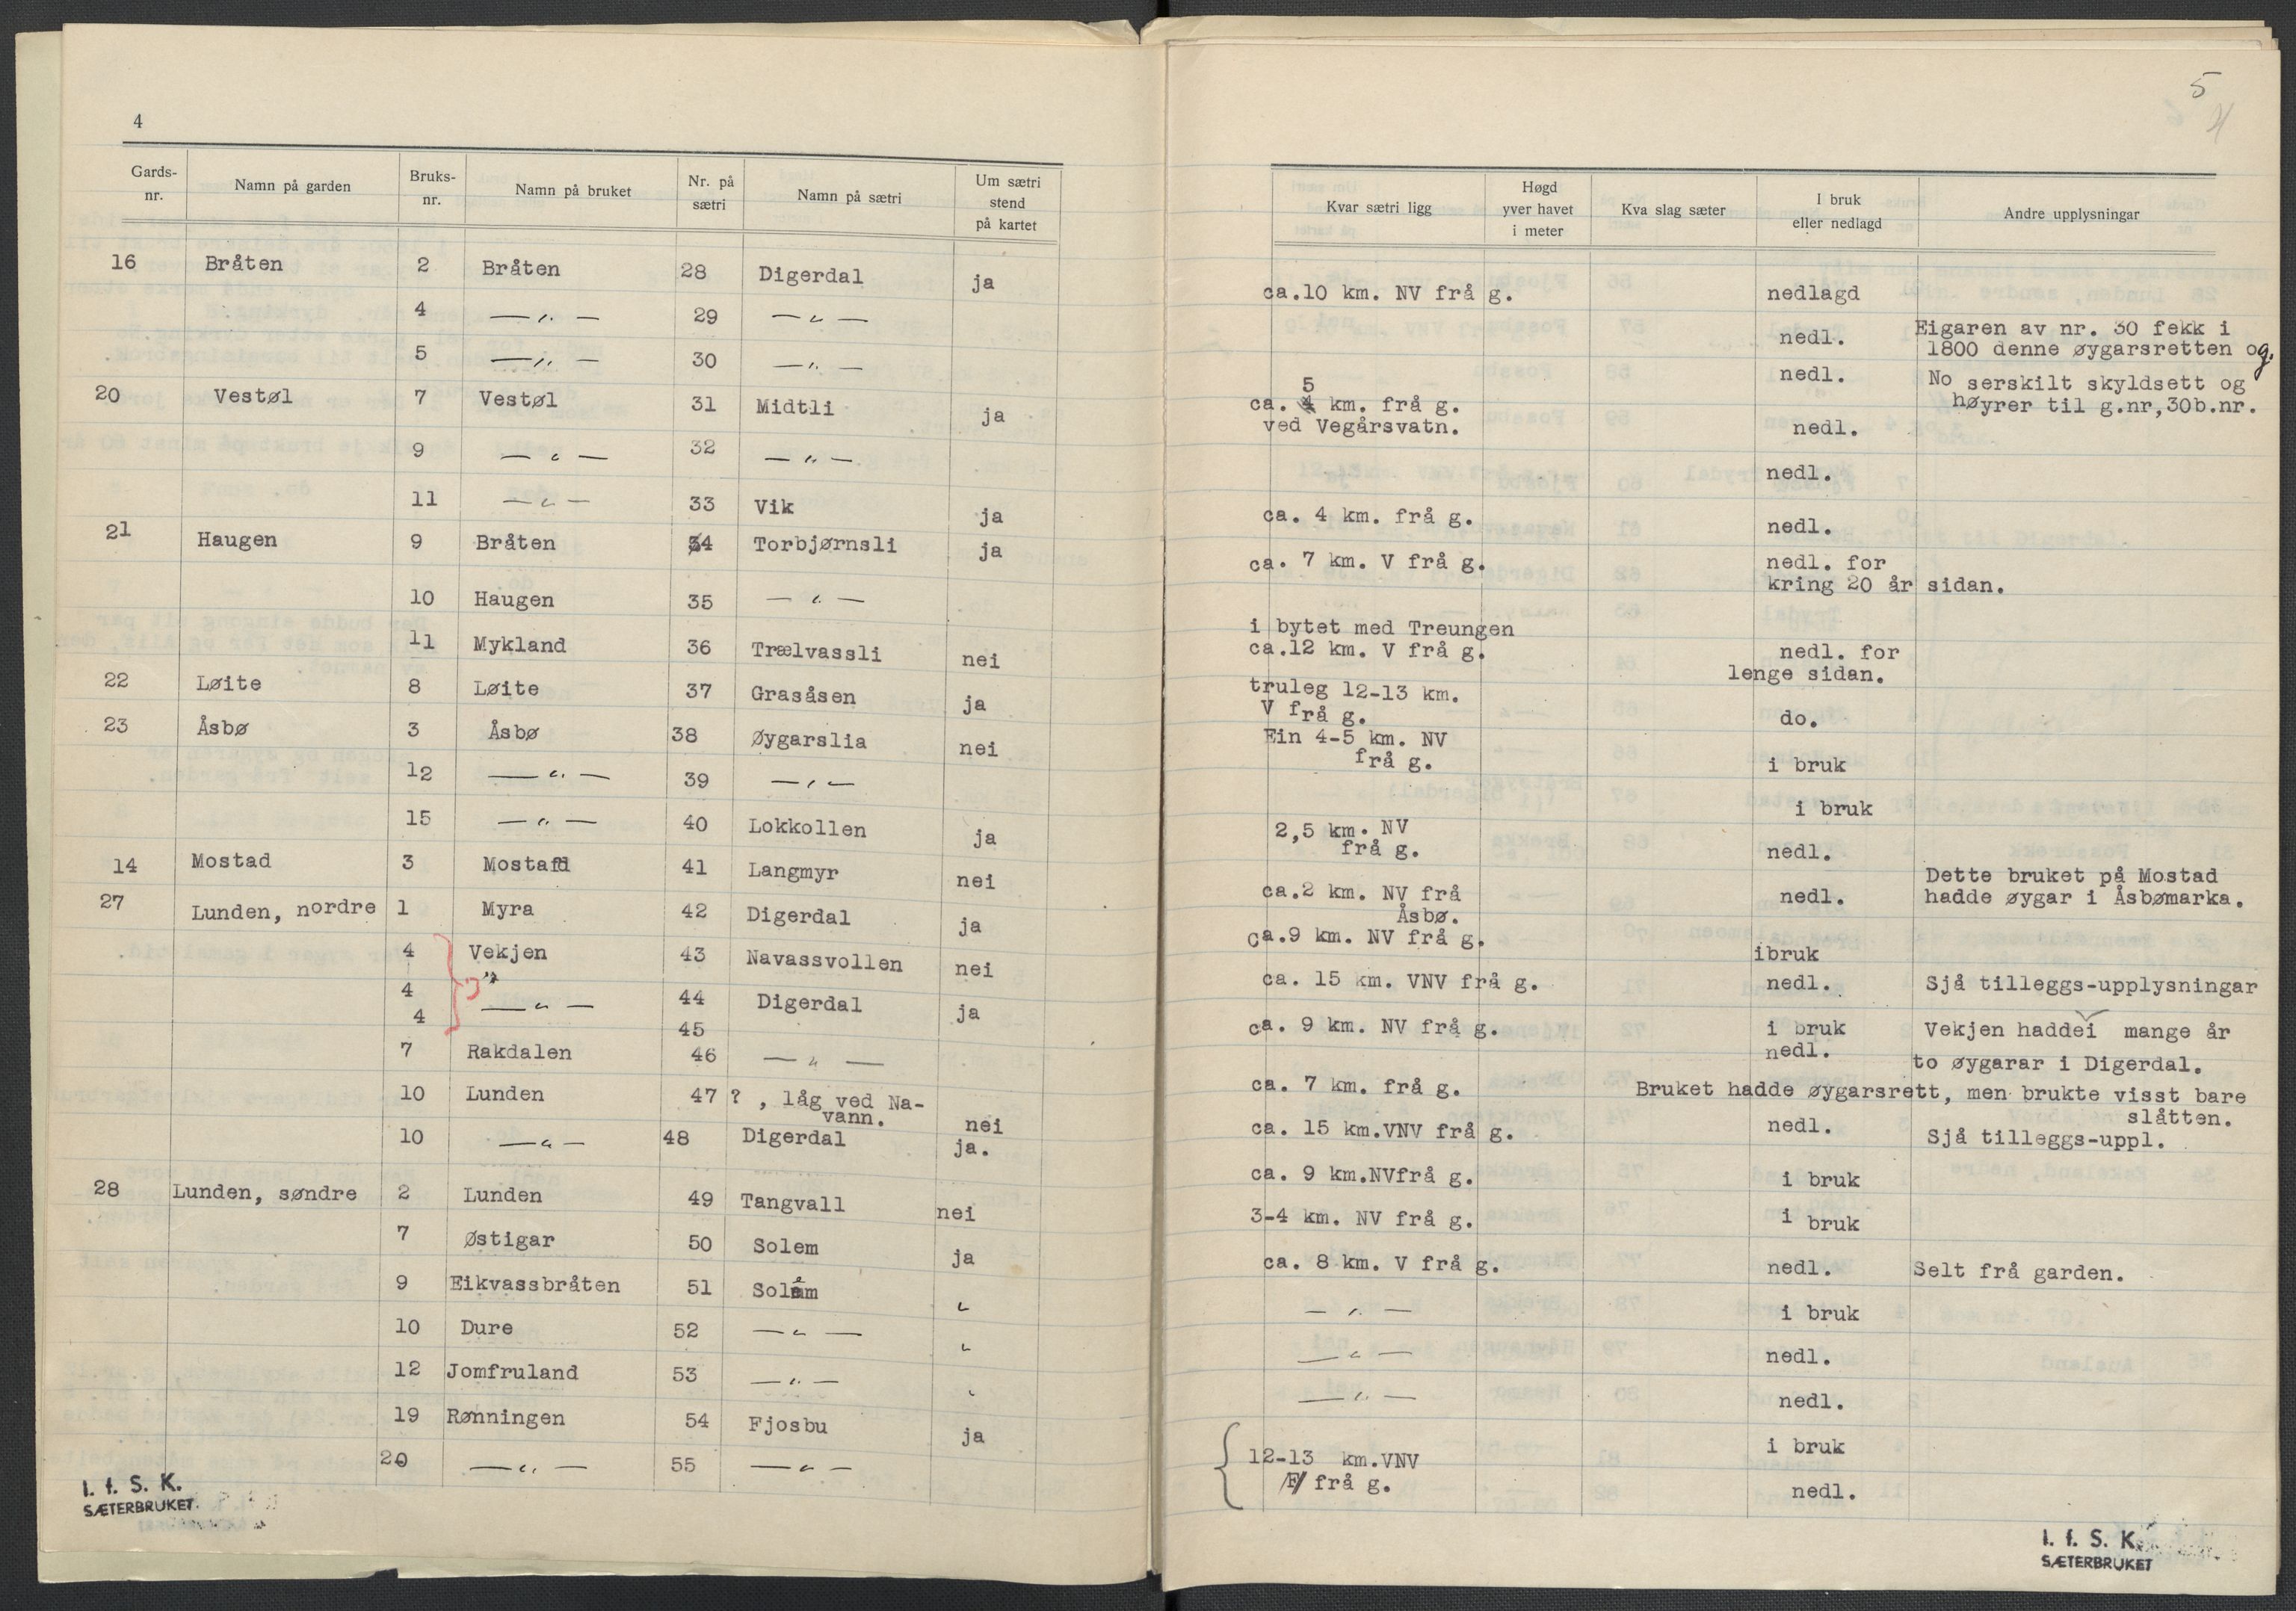 4
Gards-nr. Namn på garden Bruks-nr. Namn på bruket Nr. på sætri Namn på sætri Um sætri stend på kartet
16 Bråten 2 Bråten 28 Digerdal ja
4 —"— 29 —"—
5 —"— 30 —"—
20 Vestøl 7 Vestøl 31 Midtli ja
9 —"— 32 —"—
11 —"— 33 Vik ja
21 Haugen 9 Bråten 34 Torbjørnsli ja
10 Haugen 35 —"—
11 Mykland 36 Trælvassli nei
22 Løite 8 Løite 37 Grasåsen ja
23 Åsbø 3 Åsbø 38 Øygarslia nei
12 —"— 39 —"—
15 —"— 40 Lokkollen ja
14 Mostad 3 Mostad 41 Langmyr nei
27 Lunden, nordre 1 Myra 42 Digerdal ja
4 Vekjen 43 Navassvollen nei
"
4 —"— 44 Digerdal ja
4 45
3
7 Rakdalen 46 —"—
10 Lunden 47 ? , låg ved Na-
vann. nei
10 —"— 48 Digerdal ja.
28 Lunden, søndre 2 Lunden 49 Tangvall nei
7 Østigar 50 Solem ja
9 Eikvassbråten 51 Solem "
10 Dure 52 —"— "
12 Jomfruland 53 —"— "
19 Rønningen 54 Fjosbu ja
20 —"— 55 —"—
I. f. S. K.
SÆTERBRUKET.
5
4
Kvar sætri ligg Høgd yver havet i meter Kva slag sæter I bruk eller nedlagd Andre upplysningar
ca.10 km. NV frå g. nedlagd
nedl. Eigaren av nr. 30 fekk i
1800 denne øygarsretten og.
nedl. No serskilt skyldsett og
høyrer til g.nr,30b.nr.
5
ca. 4 km. frå g.
ved Vegårsvatn. nedl.
nedl.
ca. 4 km. frå g. nedl.
ca. 7 km. V frå g. nedl. for
kring 20 år sidan.
i bytet med Treungen
ca.12 km. V frå g. nedl. for
lenge sidan.
truleg 12-13 km.
V frå g. do.
Ein 4-5 km. NV
frå g. i bruk
i bruk
2,5 km. NV
frå g. nedl.
ca.2 km. NV frå
Åsbø. nedl. Dette bruket på Mostad
hadde øygar i Åsbømarka.
ca.9 km. NV frå g. ibruk
ca. 15 km. VNV frå g. nedl. Sjå tilleggs-upplysningar
ca. 9 km. NV frå g. i bruk Vekjen haddei mange år
nedl. to øygarar i Digerdal.
ca. 7 km. frå g. Bruket hadde øygarsrett, men brukte visst bare
slåtten.
ca. 15 km.VNV frå g. nedl. Sjå tilleggs-uppl.
ca. 9 km.NVfrå g. i bruk
3-4 km. NV frå g. i bruk
ca. 8 km. V frå g. nedl. Selt frå garden.
—"— i bruk
—"— nedl.
—"— nedl.
12-13 km.VNV i bruk
frå g. nedl.
I. f. S. K.
SÆTERBRUKET